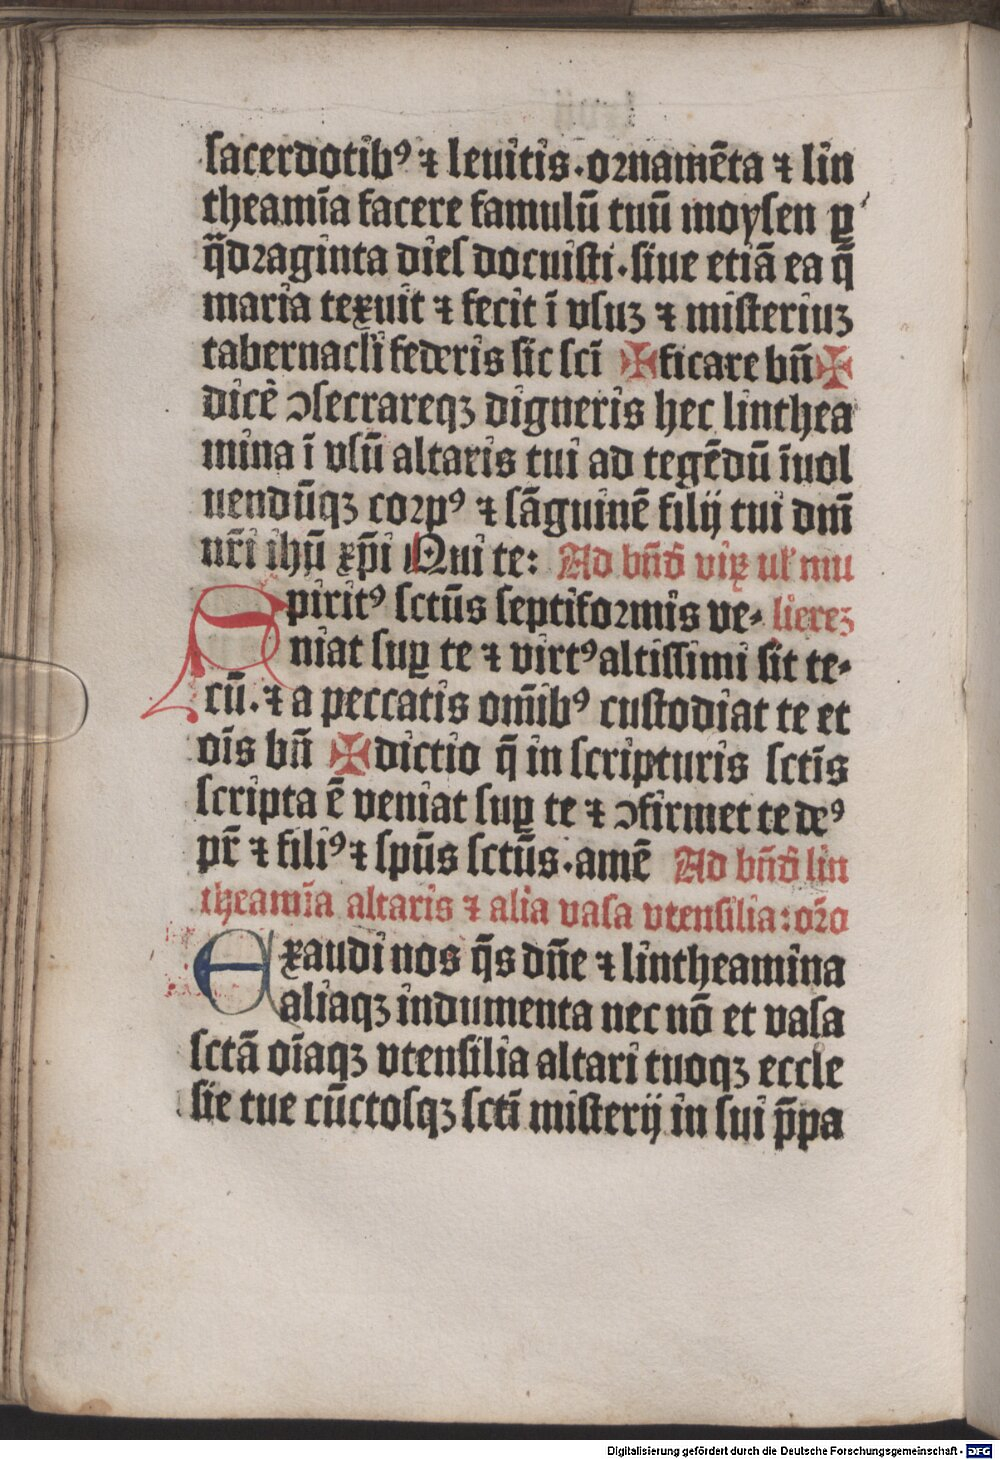 sacerdotibꝰ ⁊ leuitis.ornamēta ⁊ lin
theamīa facere famulū tuū moysen ꝑ
q̄draginta dies docuisti.siue etiā ea q̄
maria texuit ⁊ fecit ī vsuꝫ ⁊ misteriuꝫ
tabernacl̄i federis sic scī ✠ficare bn̄✠
dicē ↄsecrareqꝫ digneris hec linthea
mina ī vsū altaris tui ad tegēdū īuol
uendūqꝫ corpꝰ ⁊ sāguinē filij tui dn̄i
nr̄i ihū xp̄i Qui te: Ad bn̄d̄ viꝝ ul̄ mu
Spiritꝰ sctūs septiformis ve⸗ liereꝫ
niat suꝑ te ⁊ virtꝰ altissimi sit te⸗
cū.⁊ a peccatis om̄ibꝰ custodiat te et
oīs bn̄ ✠dictio q̄ in scripturis sctīs
scripta ē veniat suꝑ te ⁊ ↄfirmet te deꝰ
pr̄ ⁊ filiꝰ ⁊ spūs sctūs.amē Ad bn̄d̄ lin
theamīa altaris ⁊ alia vasa vtensilia:or̄o
Exaudi nos q̄s dn̄e ⁊ lintheamina
aliaqꝫ indumenta nec nō et vasa
sctā oīaqꝫ vtensilia altari tuoqꝫ eccle
sie tue cūctosqꝫ sctī misterij in sui p̄pa
Digitalisierung gefördert durch die Deutsche Forschungsgemeinschaft - DFG